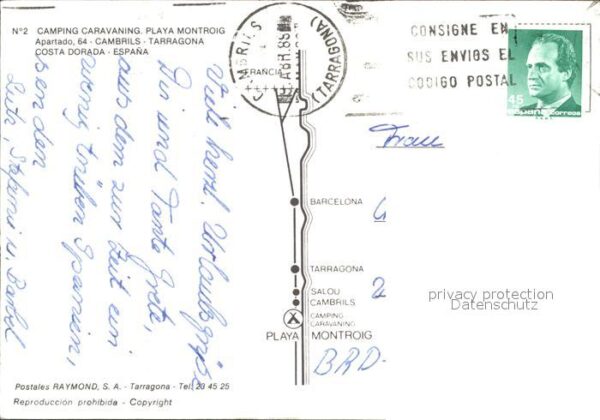 Nº2 CAMPING CARAVANING. PLAYA MONTROIG
Apartado, 64 - CAMBRILS - TARRAGONA
COSTA DORADA - ESPAÑA
CAMBRILS
ABR. 89
(TARRAGONA)
CONSIGNE EN
SUS ENVIOS EL
CODIGO POSTAL
45
España correos
FRANCIA
BARCELONA
TARRAGONA
SALOU
CAMBRILS
CAMPING
CARAVANING
PLAYA MONTROIG
Viele herzl. Urlaubsgrüße
Dir und Tante Grete,
aus dem zur Zeit ein
wenig trüben Spanien,
senden
Lutz, Stefanie u. Bärbel
Frau
BRD-
privacy protection
Datenschutz
Postales RAYMOND, S. A. - Tarragona - Tel. 23 45 25
Reproducción prohibida - Copyright